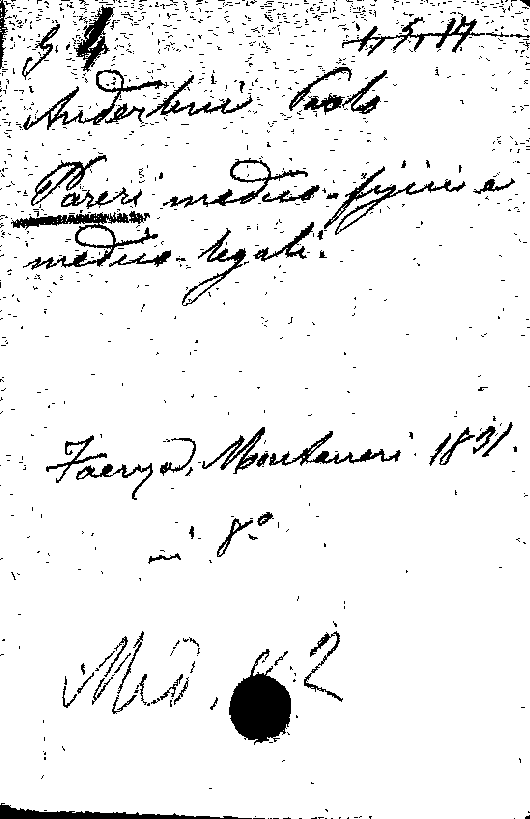 G. 4
1, 5, 14
Anderlini Paolo
Pareri medico-fisici e
medico-legali.
Faenza, Montanari 1831.
in 8°
Med. 2